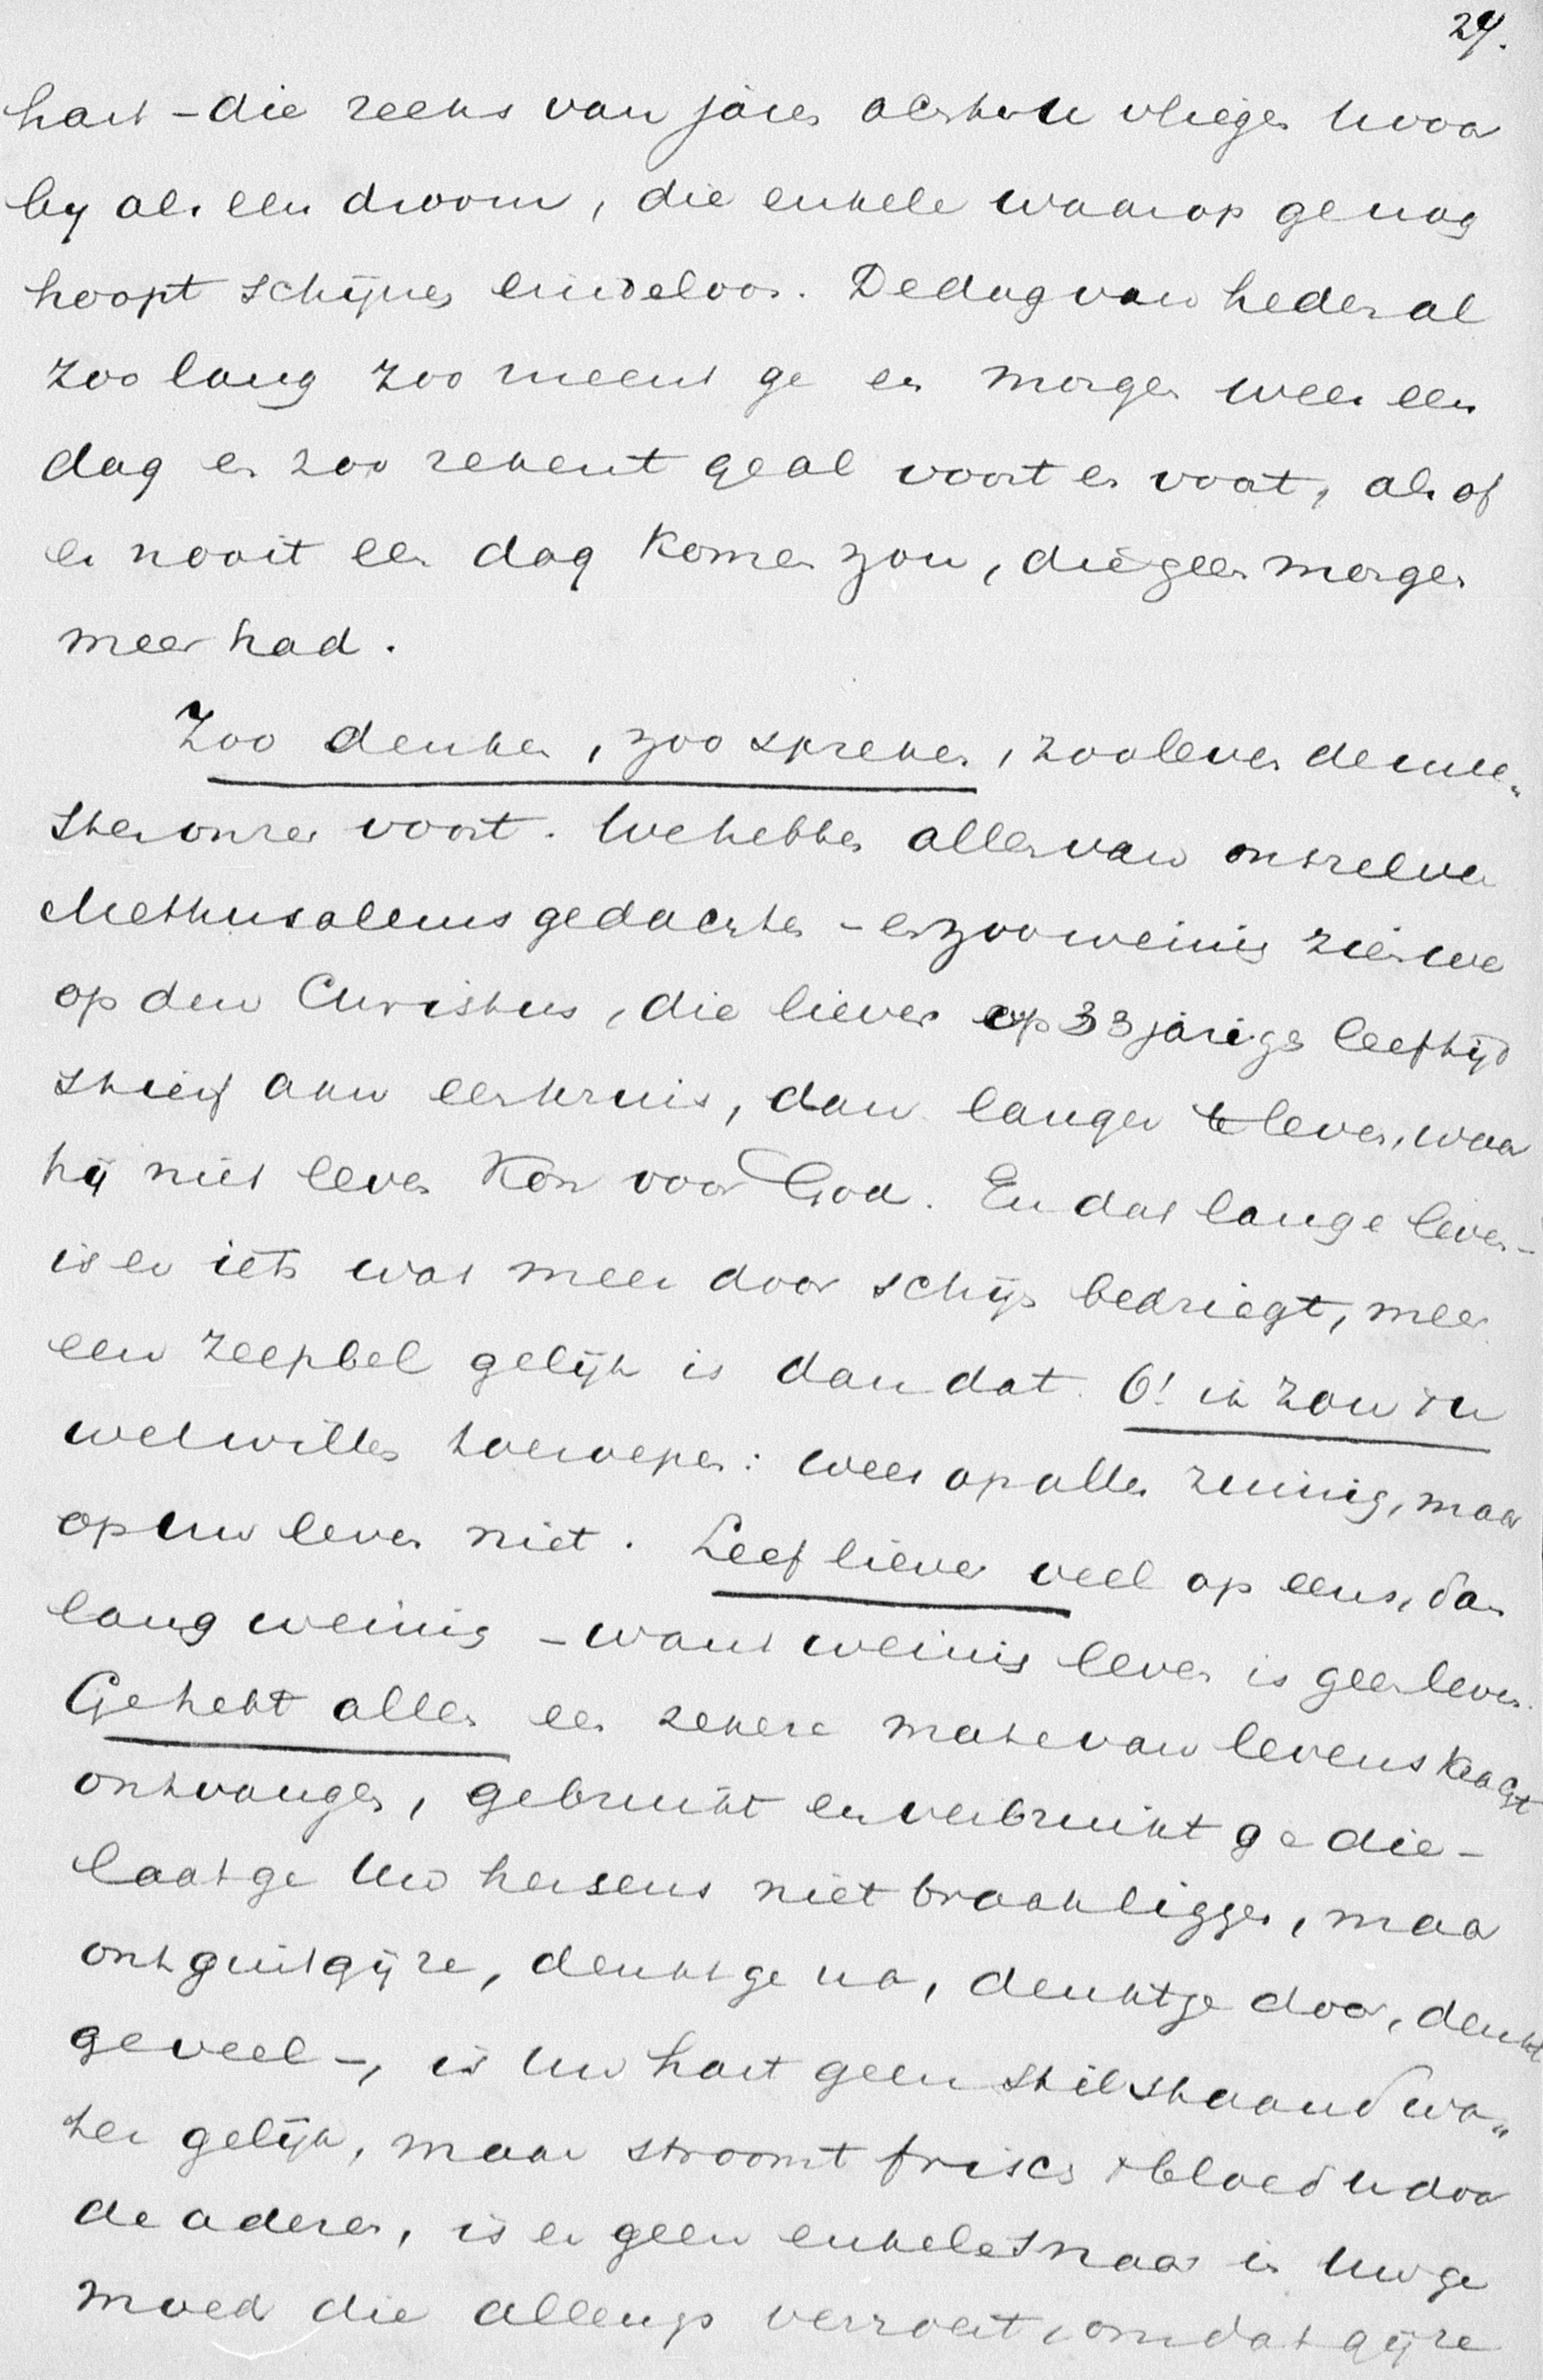 24.
hart – die reeks van jaren achter u vliegen u voor
by als een droom, die enkele waarop ge nog
hoopt schijnen eindeloos. De dag van heden al
zoo lang zoo meent ge en morgen weer een
dag en zoo rekent ge al voort en voort, als of
er nooit een dag komen zou, die geen morgen
meer had.
Zoo denken, zoo spreken, zoo leven de mee„
sten onzer voort. We hebben allen van ons zelven
Methusalems gedachten – en zoo weinig zien we
op den Christus, die liever op 33 jarigen leeftijd
stierf aan een kruis, dan langer te leven, waar
hij niet leven kon voor God. En dat lange leven –
is er iets wat meer door schijn bedriegt, meer
een zeepbel gelijk is dan dat. O! ik zou 't u
wel willen toeroepen: wees op alles zuinig, maar
op uw leven niet. Leef liever veel op eens, dan
lang weinig – want weinig leven is geen leven.
Ge hebt allen een zekere mate van levenskracht
ontvangen, gebruikt en verbruikt ge die –
laat ge Uw hersens niet braak liggen, maar
ontgint gij ze, denkt ge na, denkt ge door, denkt
ge veel –, is Uw hart geen stilstaand wa„
ter gelijk, maar stroomt frisch 't bloed u door
de aderen, is er geen enkele snaar in Uw ge
moed die allengs verroest, omdat gij ze